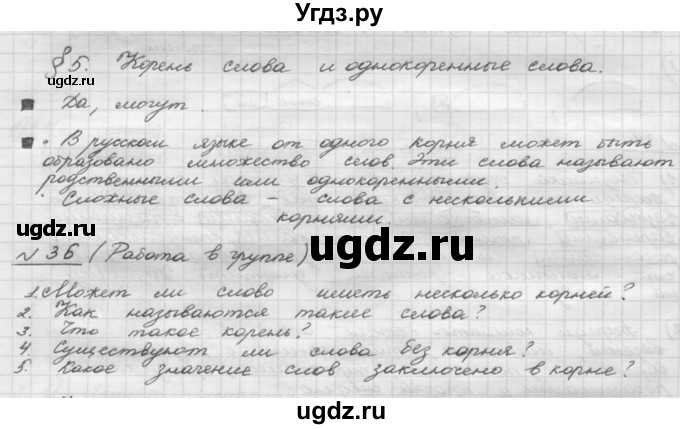 Угдз.ру
§ 5. Корень слова и однокоренные слова.
Да, могут.
• В русском языке от одного корня может быть
образовано множество слов. Эти слова называют
родственными или однокоренными.
• Сложные слова – слова с несколькими
корнями.
№ 36 (Работа в группе)
1. Может ли слово иметь несколько корней?
2. Как называются такие слова?
3. Что такое корень?
4. Существуют ли слова без корня?
5. Какое значение слов заключено в корне?
ugdz.ru
ugdz.ru
ugdz.ru
ugdz.ru
ugdz.ru
ugdz.ru
ugdz.ru